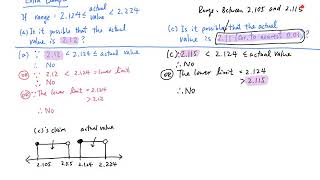 Extra Example
If actual
range: 2.124 ≤ value < 2.224
(a) Is it possible that the actual
value is 2.12?
(a) ∵ 2.12 < 2.124 ≤ actual value
∴ No
OR ∵ 2.12 < 2.124 = lower limit
∴ No
OR ∵ The lower limit = 2.124
> 2.12
∴ No
Range: Between 2.105 and 2.115
(c) Is it possible that the actual
value is 2.11 (cor. to nearest 0.01)?
(c) ∵ 2.115 < 2.124 ≤ actual value
∴ No
OR The lower limit = 2.124
> 2.115
∴ No
(c)'s claim actual value
2.105 2.115 2.124 2.224